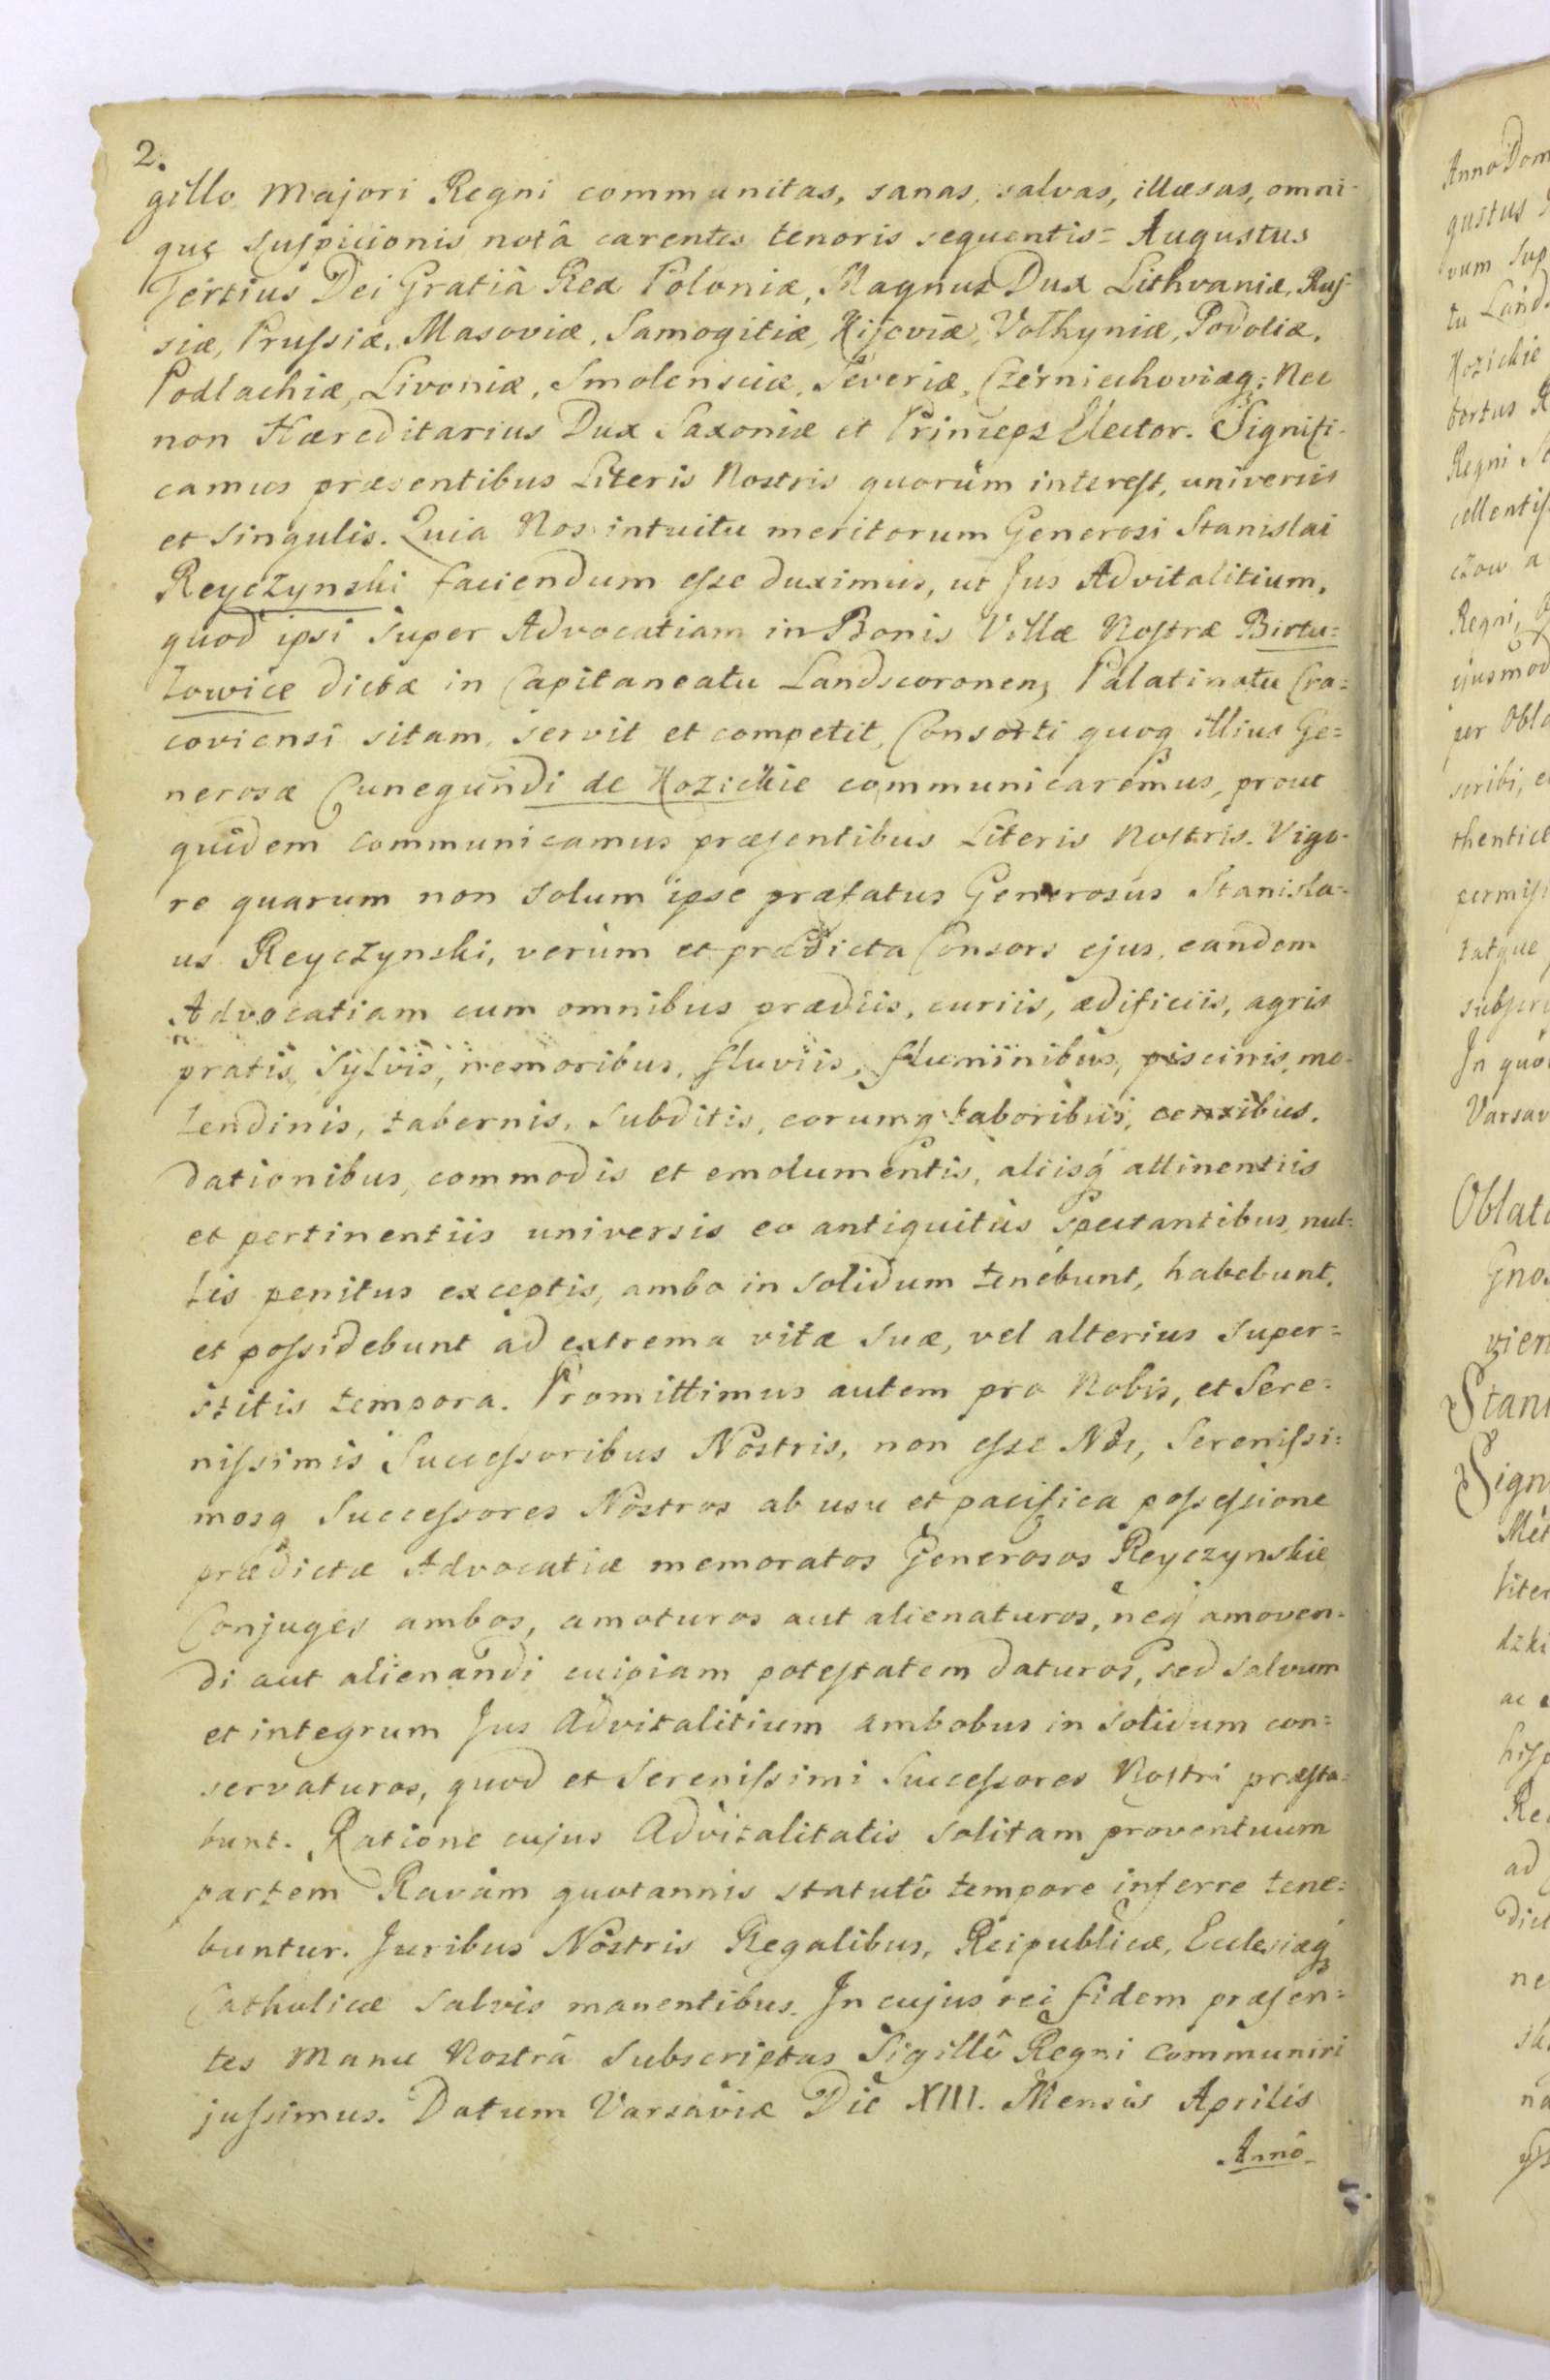 2.
gillo Majori Regni communitas, sanas, salvas, illæsas, omni-
que suspicionis notâ carentes tenoris sequentis= Augustus
Tertius Dei Gratiâ Rex Poloniæ, Magnus Dux Lithvaniæ, Rus-
siæ, Prussiæ, Masoviæ, Samogitiæ, Kijoviæ, Volhyniæ, Podoliæ,
Podlachiæ, Livoniæ, Smolensciæ, Severiæ, Czerniechoviæq; Nec
non Hæreditarius Dux Saxoniæ et Princeps Elector. Signifi-
camus præsentibus Literis Nostris quorum interest, universis
et singulis. Quia Nos intuitu meritorum Generosi Stanislai
Reyczynski faciendum esse duximus, ut Jus Advitalitium,
quod ipsi super Advocatiam in Bonis Villæ Nostræ Birtu=
towice dictæ in Capitaneatu Landscoronen, Palatinatu Cra=
coviensi sitam, servit et competit, Consorti quoq illius Ge=
nerosæ Cunegundi de Kozickie communicaremus, prout
quidem communicamus præsentibus Literis Nostris. Vigo-
re quarum non solum ipse præfatus Generosus Stanisla=
us Reyczynski, verùm et prædicta Consors ejus, eandem
Advocatiam cum omnibus prædiis, curiis, ædificiis, agris
pratis, sylvis, nemoribus, fluviis, fluminibus, piscinis, mo-
lendinis, tabernis, subditis, eorumq laboribus, censibus,
dationibus, commodis et emolumentis, aliisq attinentiis
et pertinentiis universis eo antiquitùs spectantibus, nul=
lis penitus exceptis, ambo in solidum tenebunt, habebunt,
et possidebunt ad extrema vitæ suæ, vel alterius super=
stitis tempora. Promittimus autem pro Nobis, et Sere=
nissimis Successoribus Nostris, non esse Nos, Serenissi=
mosq Successores Nostros ab usu et pacifica possessione
prædictæ Advocatiæ memoratos Generosos Reyczynskie
Conjuges ambos, amoturos aut alienaturos, neq amoven=
di aut alienandi cuipiam potestatem daturos, sed salvum
et integrum Jus Advitalitium ambobus in solidum con=
servaturos, quod et Serenissimi Successores Nostri præsta=
bunt. Ratione cujus Advitalitatis solitam proventuum
partem Ravam quotannis statutô tempore inferre tene=
buntur. Juribus Nostris Regalibus, Reipublicæ, Ecclesiæq
Catholicæ salvis manentibus. In cujus rei fidem præsen=
tes Manu Nostrâ subscriptas Sigillô Regni communiri
jussimus. Datum Varsaviæ Die XIII. Mensis Aprilis
Annô